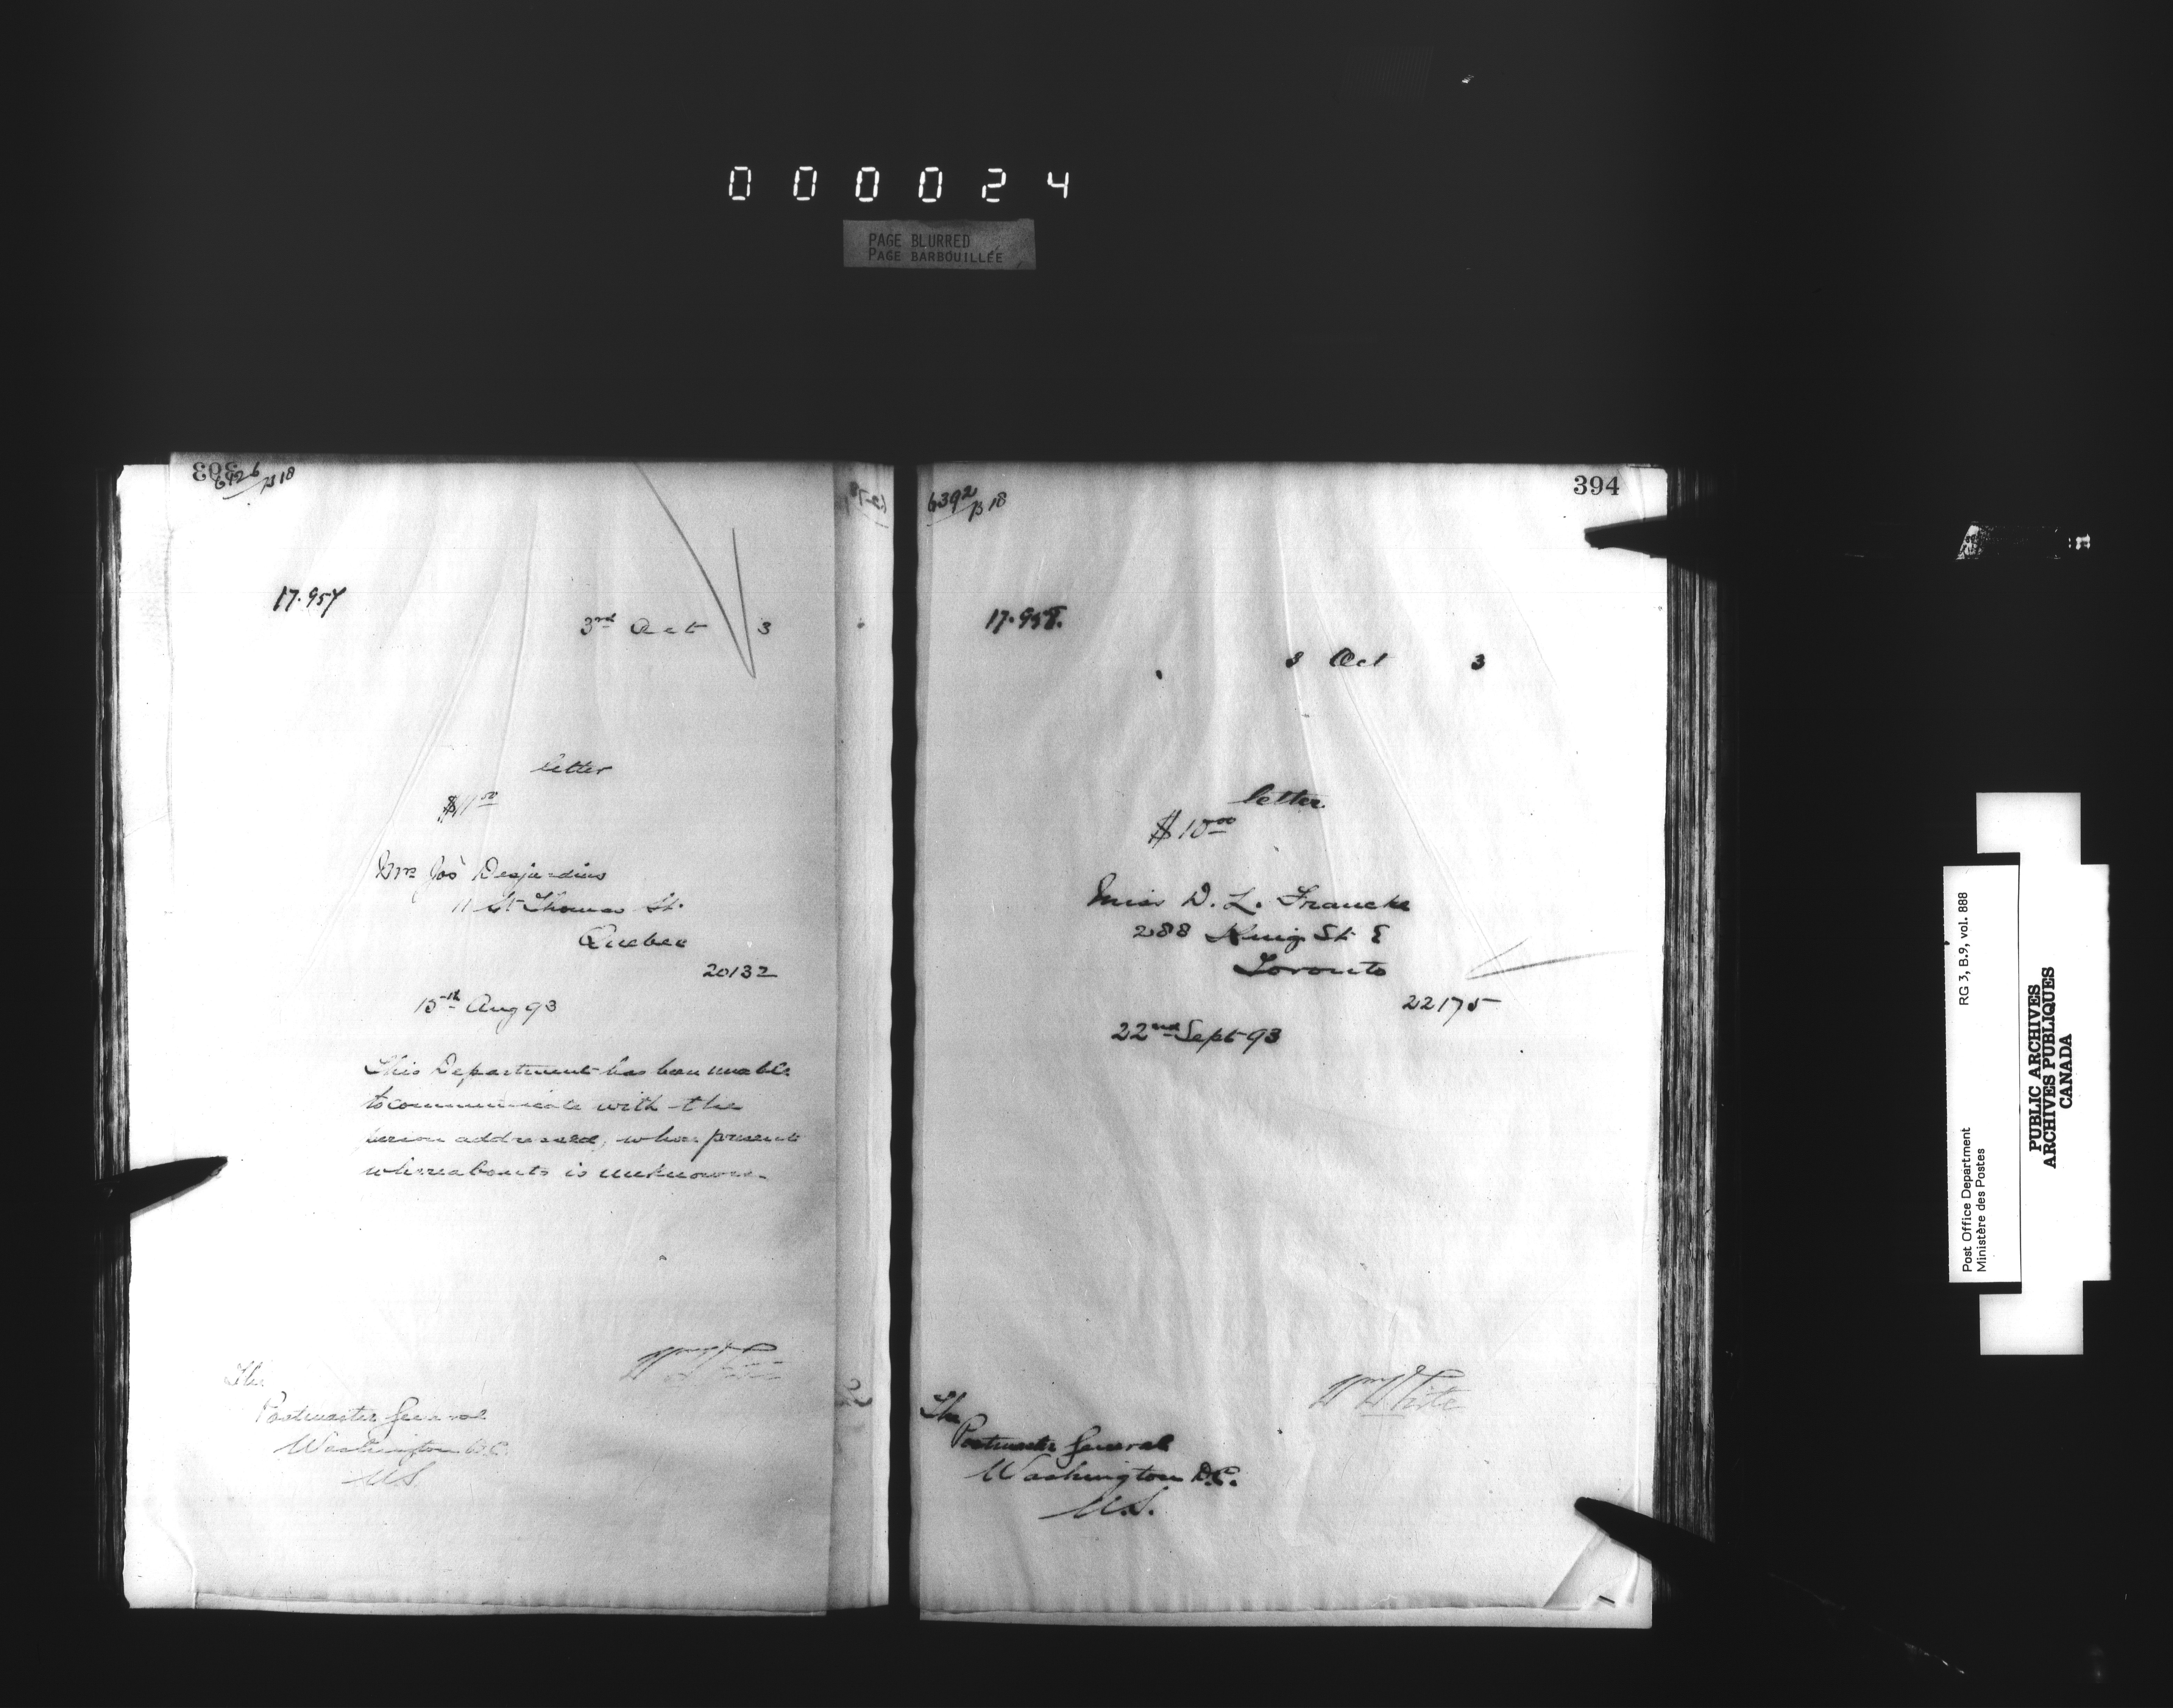 000024
PAGE BLURRED
PAGE BARBOUILLÉE
393
B 18
17.957
3rd Oct 3
letter
Mrs Jos Desjardins
11 St Thomas St.
Quebec
20132
15th Aug 93
This Department has been unable
to communicate with the
person addressed, whose present
whereabouts is unknown.
Wm White
The
Postmaster General
Washington D.C.
U.S.
394
6392
B 18
17.958.
3 Oct 3
letter
$10 00
Miss D. L. Francke
288 King St E
Toronto
22175
22nd Sept 93
Wm White
The
Postmaster General
Washington D.C.
U.S.
Post Office Department
Ministère des Postes
RG 3, B.9, vol. 888
PUBLIC ARCHIVES
ARCHIVES PUBLIQUES
CANADA